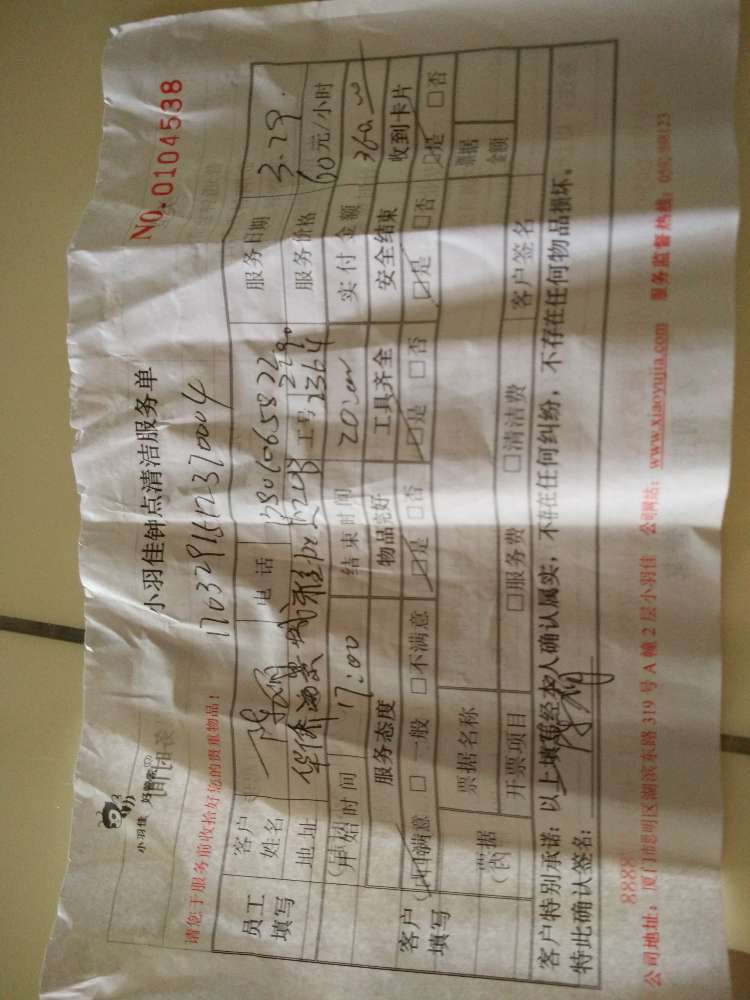 小羽佳 好管家
NO.0104538
小羽佳钟点清洁服务单
1703291612370004
请您于服务前收拾好您的贵重物品!
员工填写 客户姓名 电话 服务日期 3.29.
地址 华侨海景城 工号 1364 服务价格 60元/小时
开始时间 17:00 结束时间 20:00 实付金额 360.00
客户填写 服务态度 物品完好 工具齐全 安全结束 收到卡片
□满意 □一般 □不满意 □是 □否 □是 □否 □是 □否 □是 □否
票据名称 票据金额
开票项目 □服务费 □清洁费 客户签名
客户特别承诺: 以上填写经本人确认属实, 不存在任何纠纷, 不存在任何物品损坏。
特此确认签名:
8888
公司地址: 厦门市思明区湖滨东路319号A幢2层小羽佳 公司网站: www.xiaoyujia.com 服务监督热线: